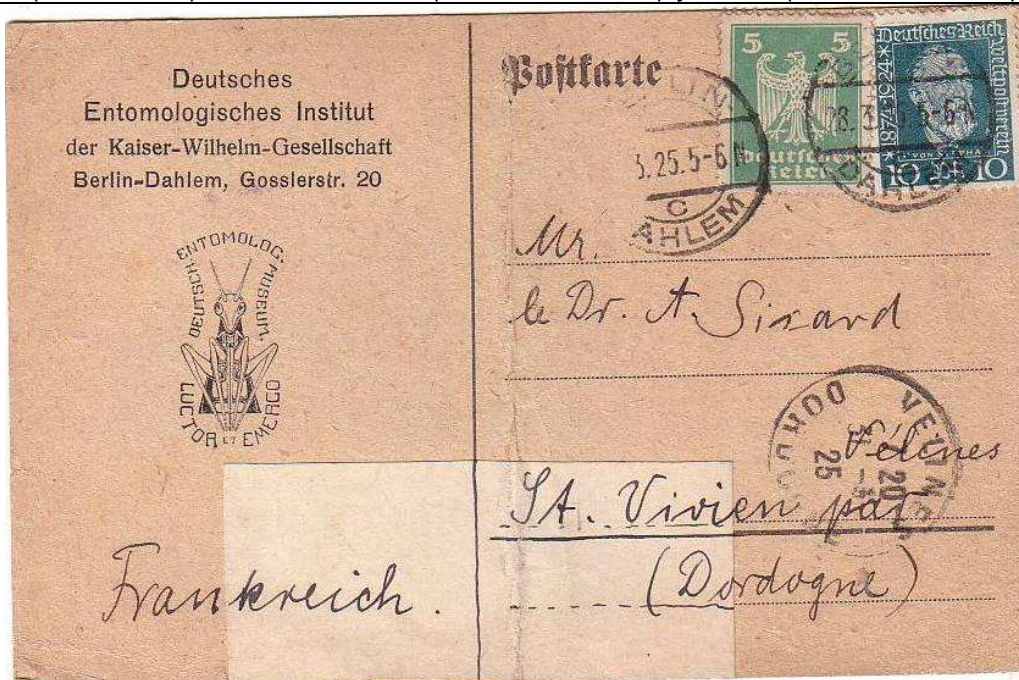 Deutsches
Entomologisches Institut
der Kaiser-Wilhelm-Gesellschaft
Berlin-Dahlem, Gosslerstr. 20
DEUTSCH. ENTOMOLOG. MUSEUM.
LUCTOR ET EMERGO
Postkarte
5 5
Deutsches
Reich
Deutsches Reich
1874-1924
Weltpostverein
10 10
3.25.5-6N
C
AHLEM
DAHLEM
Mr.
le Dr. A. Sicard
VELINES
20
25
Vélines
St. Vivien par
(Dordogne)
Frankreich.